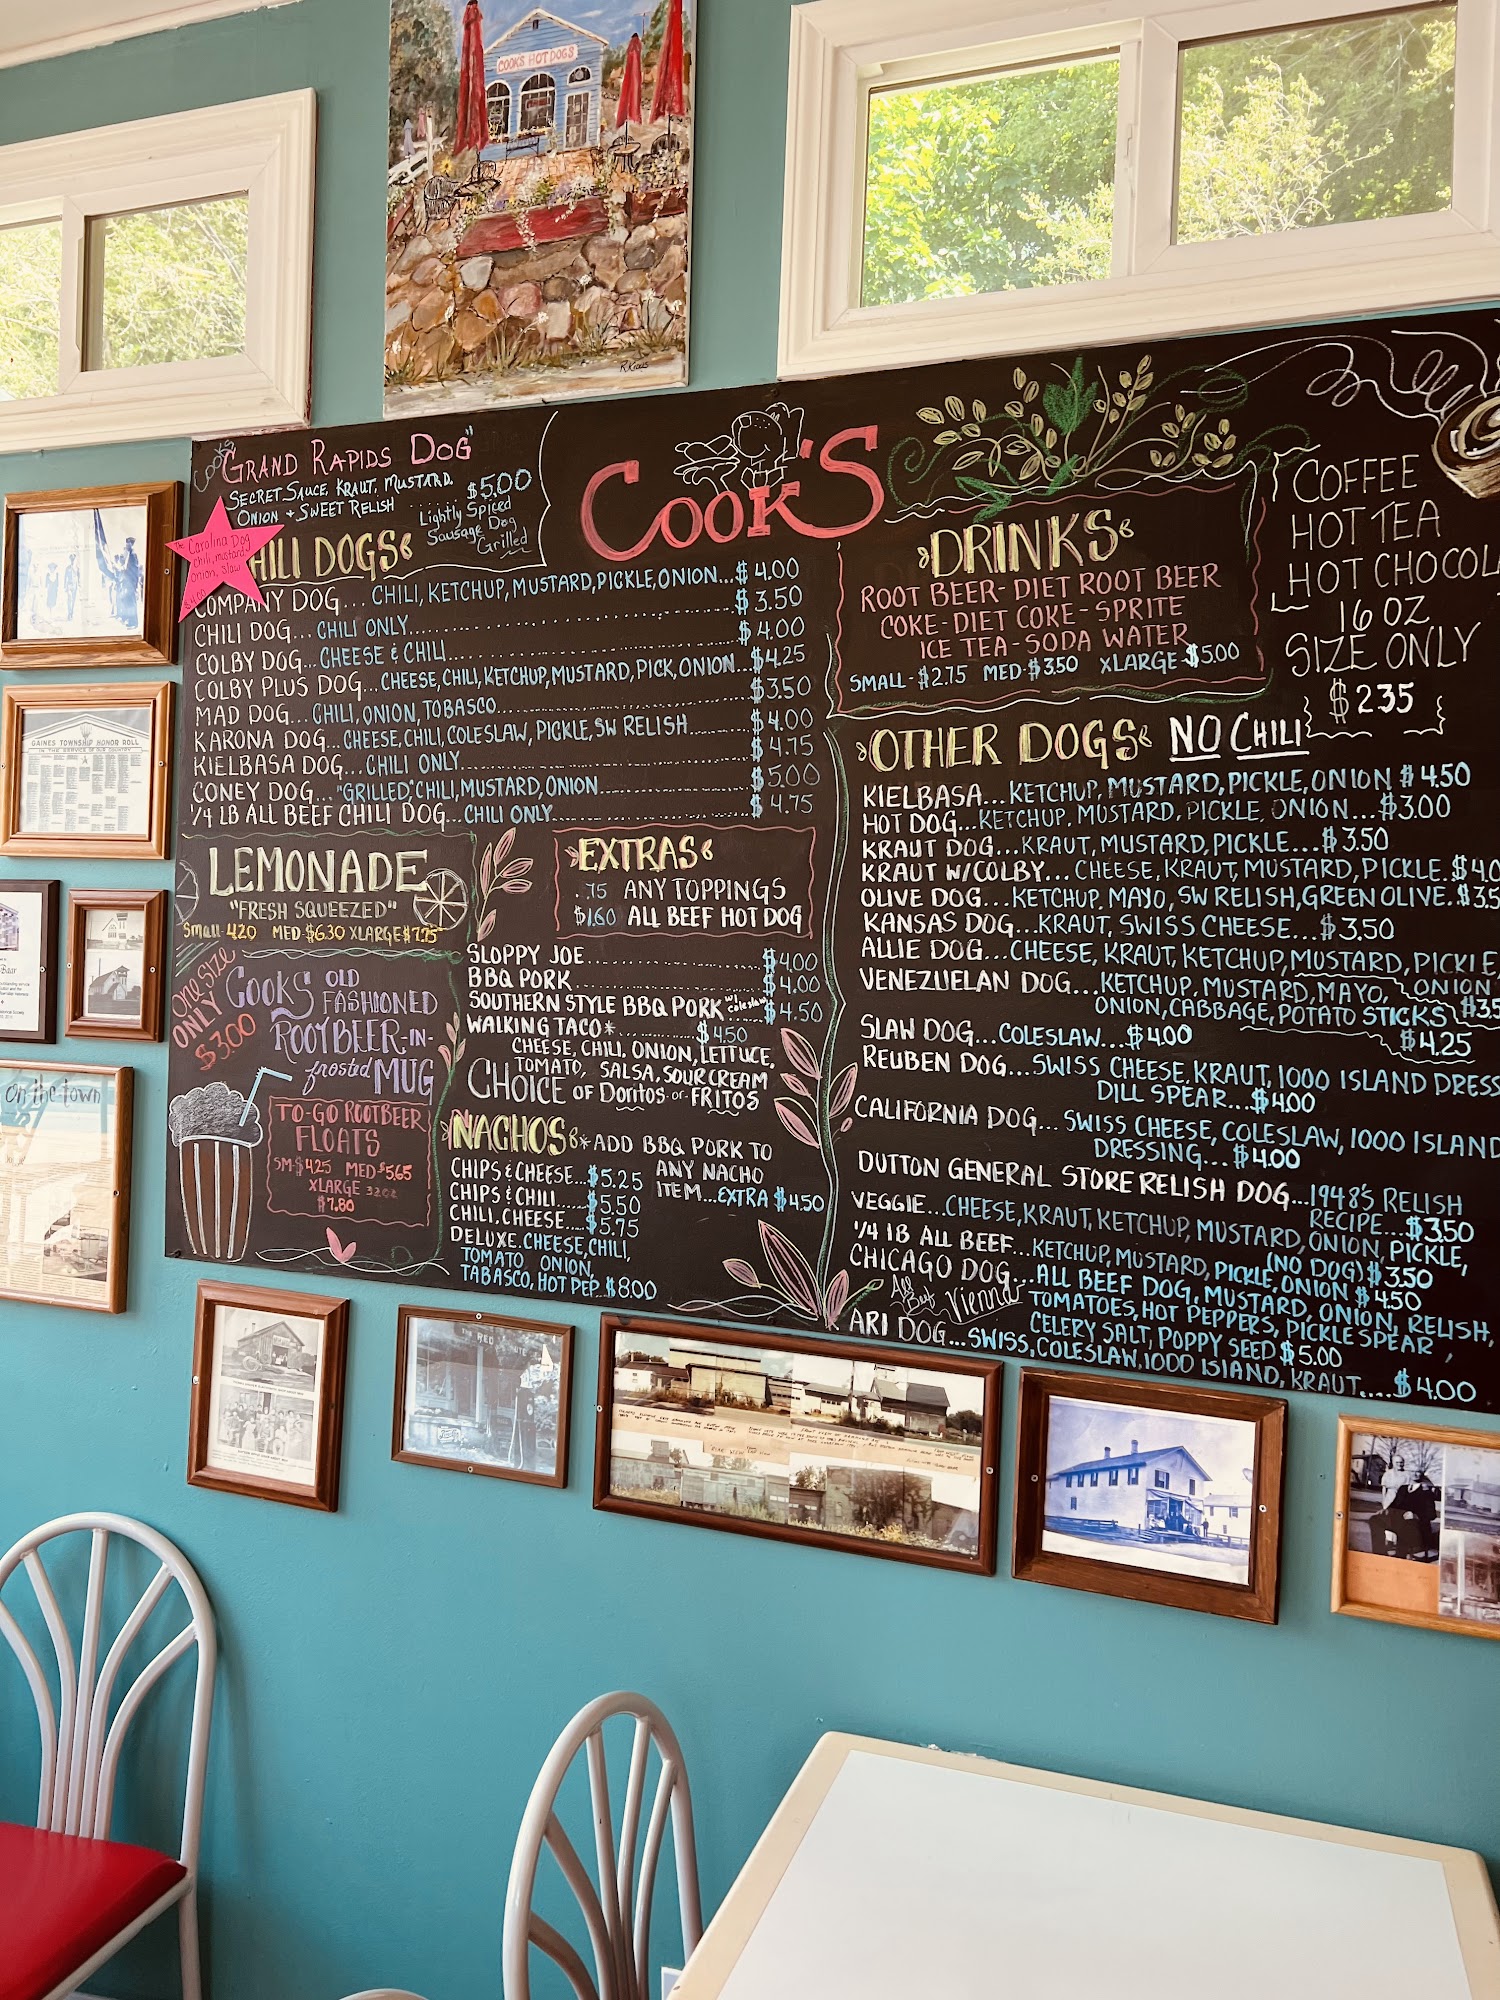 COOKS HOT DOGS
R.Kraus
COOKS
GRAND RAPIDS DOG"
SECRET SAUCE, KRAUT, MUSTARD, $5.00
ONION + SWEET RELISH
Lightly Spiced
Sausage Dog
Grilled
The Carolina Dog
Chili, mustard
Onion, Slaw
$4.00
COOK'S
HILI DOGS
COMPANY DOG... CHILI, KETCHUP, MUSTARD, PICKLE, ONION...$4.00
CHILI DOG...CHILI ONLY...$3.50
COLBY DOG...CHEESE & CHILI...$4.00
COLBY PLUS DOG...CHEESE, CHILI, KETCHUP, MUSTARD, PICK, ONION...$4.25
MAD DOG...CHILI, ONION, TOBASCO...$3.50
KARONA DOG...CHEESE, CHILI, COLESLAW, PICKLE, SW RELISH...$4.00
KIELBASA DOG...CHILI ONLY...$4.75
CONEY DOG..."GRILLED", CHILI, MUSTARD, ONION...$5.00
1/4 LB ALL BEEF CHILI DOG...CHILI ONLY...$4.75
LEMONADE
"FRESH SQUEEZED"
Small-4.20 MED $6.30 XLARGE $7.75
EXTRAS
.75 ANY TOPPINGS
$1.60 ALL BEEF HOT DOG
ONE SIZE
ONLY
$3.00
COOKS OLD
FASHIONED
ROOTBEER-IN-
frosted MUG
TO-GO ROOTBEER
FLOATS
SM-$4.25 MED $5.65
XLARGE 32OZ
$7.80
SLOPPY JOE...$4.00
BBQ PORK...$4.00
SOUTHERN STYLE BBQ PORK w/ coleslaw...$4.50
WALKING TACO*...$4.50
CHEESE, CHILI, ONION, LETTUCE,
TOMATO, SALSA, SOUR CREAM
CHOICE OF Doritos-or-FRITOS
NACHOS *ADD BBQ PORK TO
ANY NACHO
ITEM...EXTRA $4.50
CHIPS & CHEESE...$5.25
CHIPS & CHILI...$5.50
CHILI, CHEESE...$5.75
DELUXE..CHEESE, CHILI,
TOMATO ONION,
TABASCO, HOT PEP..$8.00
DRINKS
ROOT BEER-DIET ROOT BEER
COKE-DIET COKE-SPRITE
ICE TEA-SODA WATER
SMALL-$2.75 MED-$3.50 XLARGE-$5.00
COFFEE
HOT TEA
HOT CHOCOL
16 OZ
SIZE ONLY
$2.35
OTHER DOGS NO CHILI
KIELBASA...KETCHUP, MUSTARD, PICKLE, ONION $4.50
HOT DOG...KETCHUP, MUSTARD, PICKLE, ONION...$3.00
KRAUT DOG...KRAUT, MUSTARD, PICKLE...$3.50
KRAUT W/COLBY...CHEESE, KRAUT, MUSTARD, PICKLE.$4.0
OLIVE DOG...KETCHUP, MAYO, SW RELISH, GREEN OLIVE.$3.5
KANSAS DOG...KRAUT, SWISS CHEESE...$3.50
ALLIE DOG...CHEESE, KRAUT, KETCHUP, MUSTARD, PICKLE,
ONION $3.5
VENEZUELAN DOG...KETCHUP, MUSTARD, MAYO,
ONION, CABBAGE, POTATO STICKS
$4.25
SLAW DOG...COLESLAW...$4.00
REUBEN DOG...SWISS CHEESE, KRAUT, 1000 ISLAND DRESS
DILL SPEAR...$4.00
CALIFORNIA DOG...SWISS CHEESE, COLESLAW, 1000 ISLAND
DRESSING...$4.00
DUTTON GENERAL STORE RELISH DOG...1948'S RELISH
RECIPE...$3.50
VEGGIE...CHEESE, KRAUT, KETCHUP, MUSTARD, ONION, PICKLE,
(NO DOG) $3.50
1/4 LB ALL BEEF...KETCHUP, MUSTARD, PICKLE, ONION $4.50
CHICAGO DOG...ALL BEEF DOG, MUSTARD, ONION, RELISH,
All Beef Vienna TOMATOES, HOT PEPPERS, PICKLE SPEAR,
CELERY SALT, POPPY SEED $5.00
ARI DOG...SWISS, COLESLAW, 1000 ISLAND, KRAUT....$4.00
GAINES TOWNSHIP HONOR ROLL
IN THE SERVICE OF OUR COUNTRY
Baar
On the town
THE RED